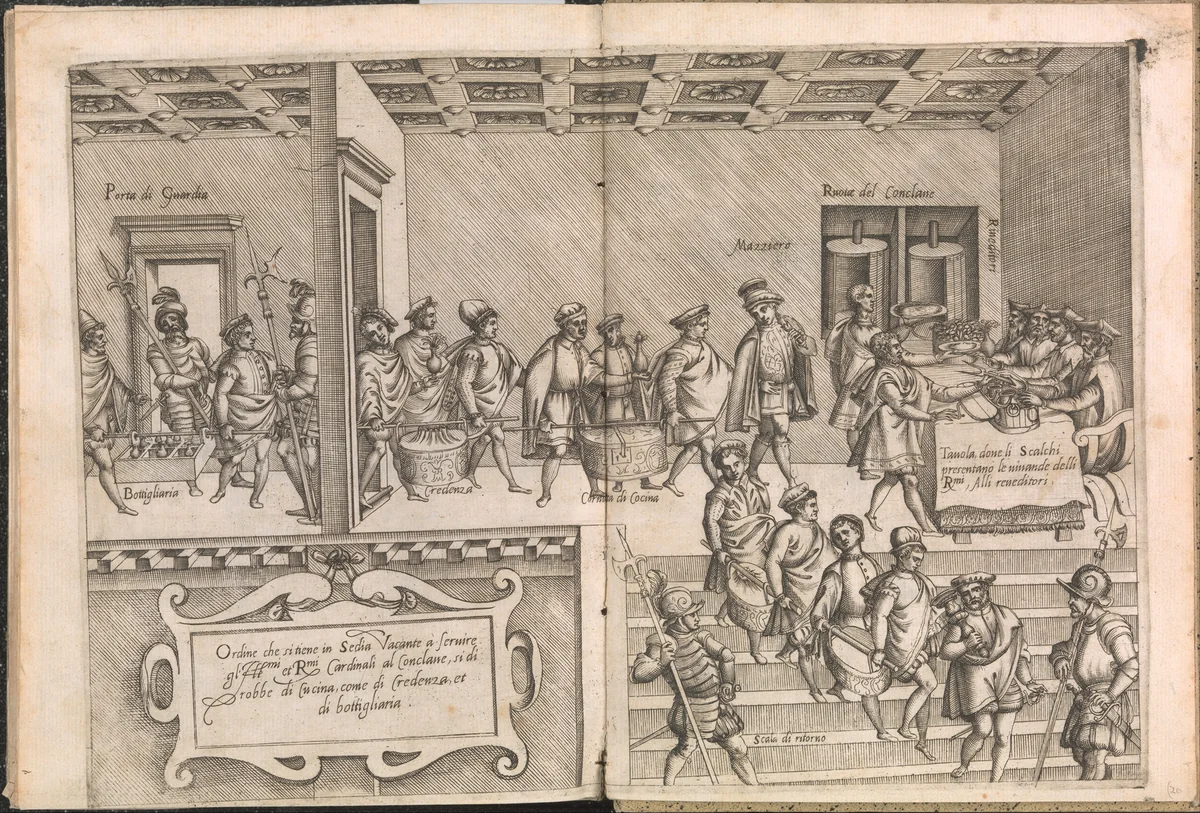 Porta di Guardia
Ruote del Conclaue
Mazziero
Riueditori
Bottigliaria
Credenza
Cornuta di Cocina
Tauola, doue li Scalchi
presentano le uiuande delli
Rmi, Alli reueditori.
Ordine che si tiene in Sedia Vacante à seruire
gl'Illmi et Rmi Cardinali al Conclaue, si di
robbe di Cucina, come di Credenza, et
di bottigliaria.
Scala di ritorno